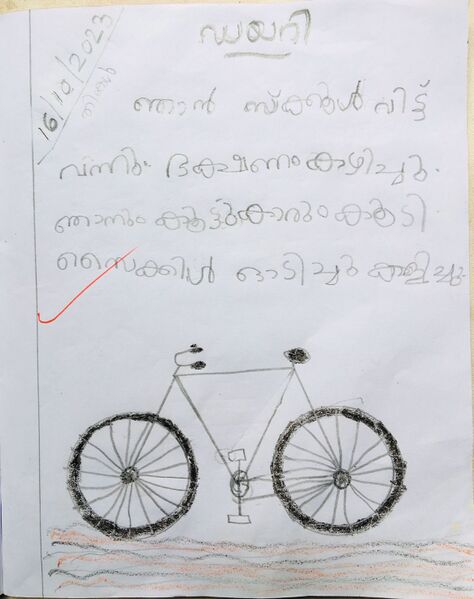 ഡയറി
16/10/2023
തിങ്കൾ
ഞാൻ സ്ക്കൂൾ വിട്ട്
വന്നു. ഭക്ഷണം കഴിച്ചു.
ഞാനും കൂട്ടുകാരും കൂടി
സൈക്കിൾ ഓടിച്ചു കളിച്ചു.